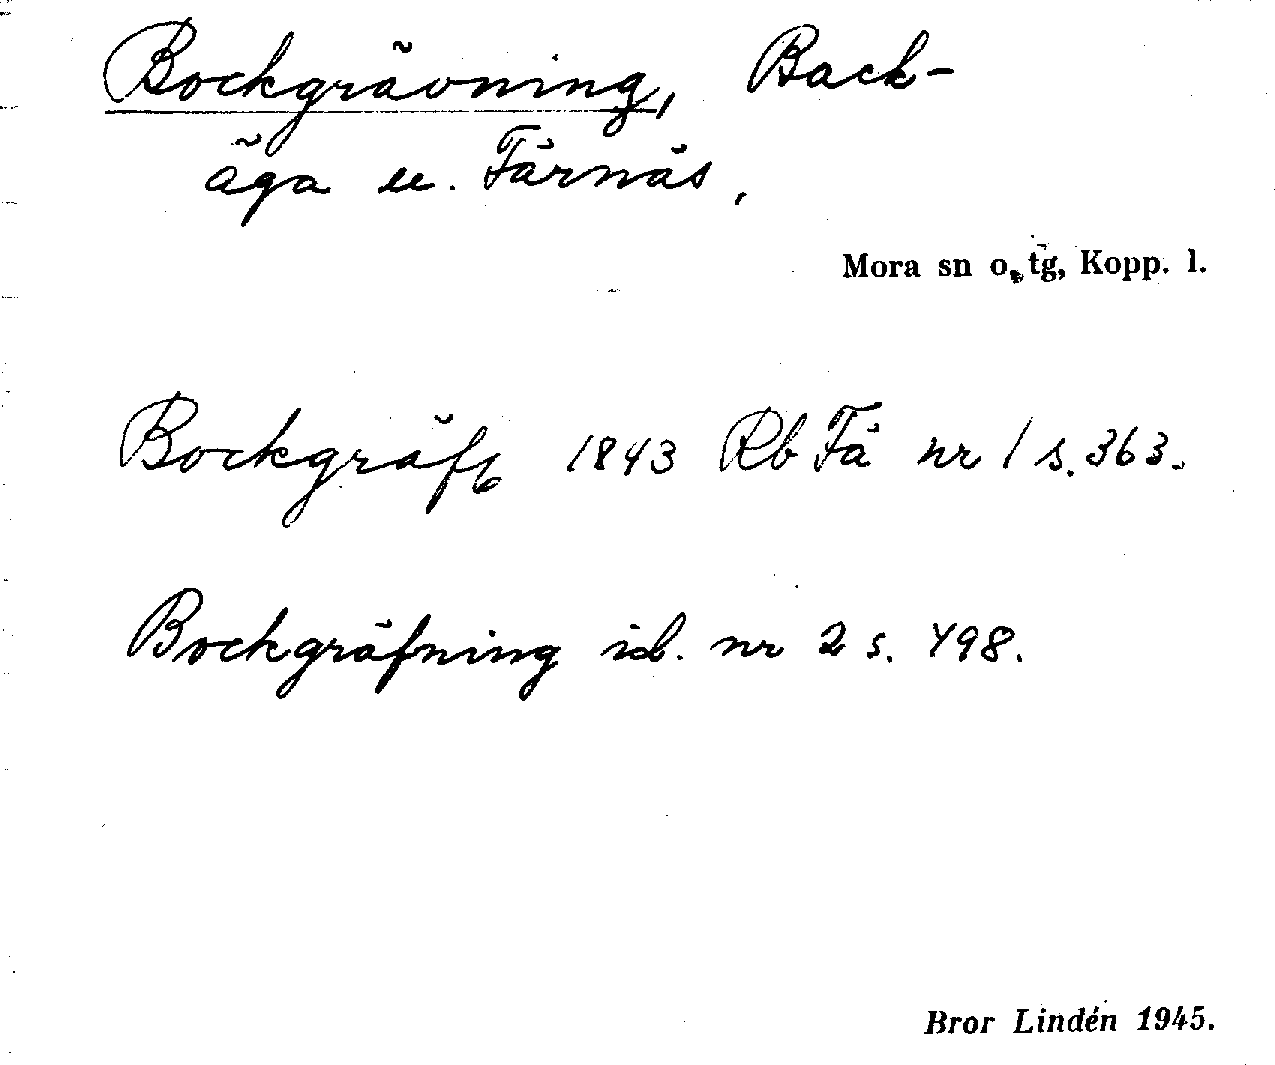 Bockgrävning, Back-
äga u. Färnäs.
Mora sn o. tg, Kopp. l.
Bockgräft 1843 Rb Fä nr 1 s. 363.
Bockgräfning ib. nr 2 s. 498.
Bror Lindén 1945.